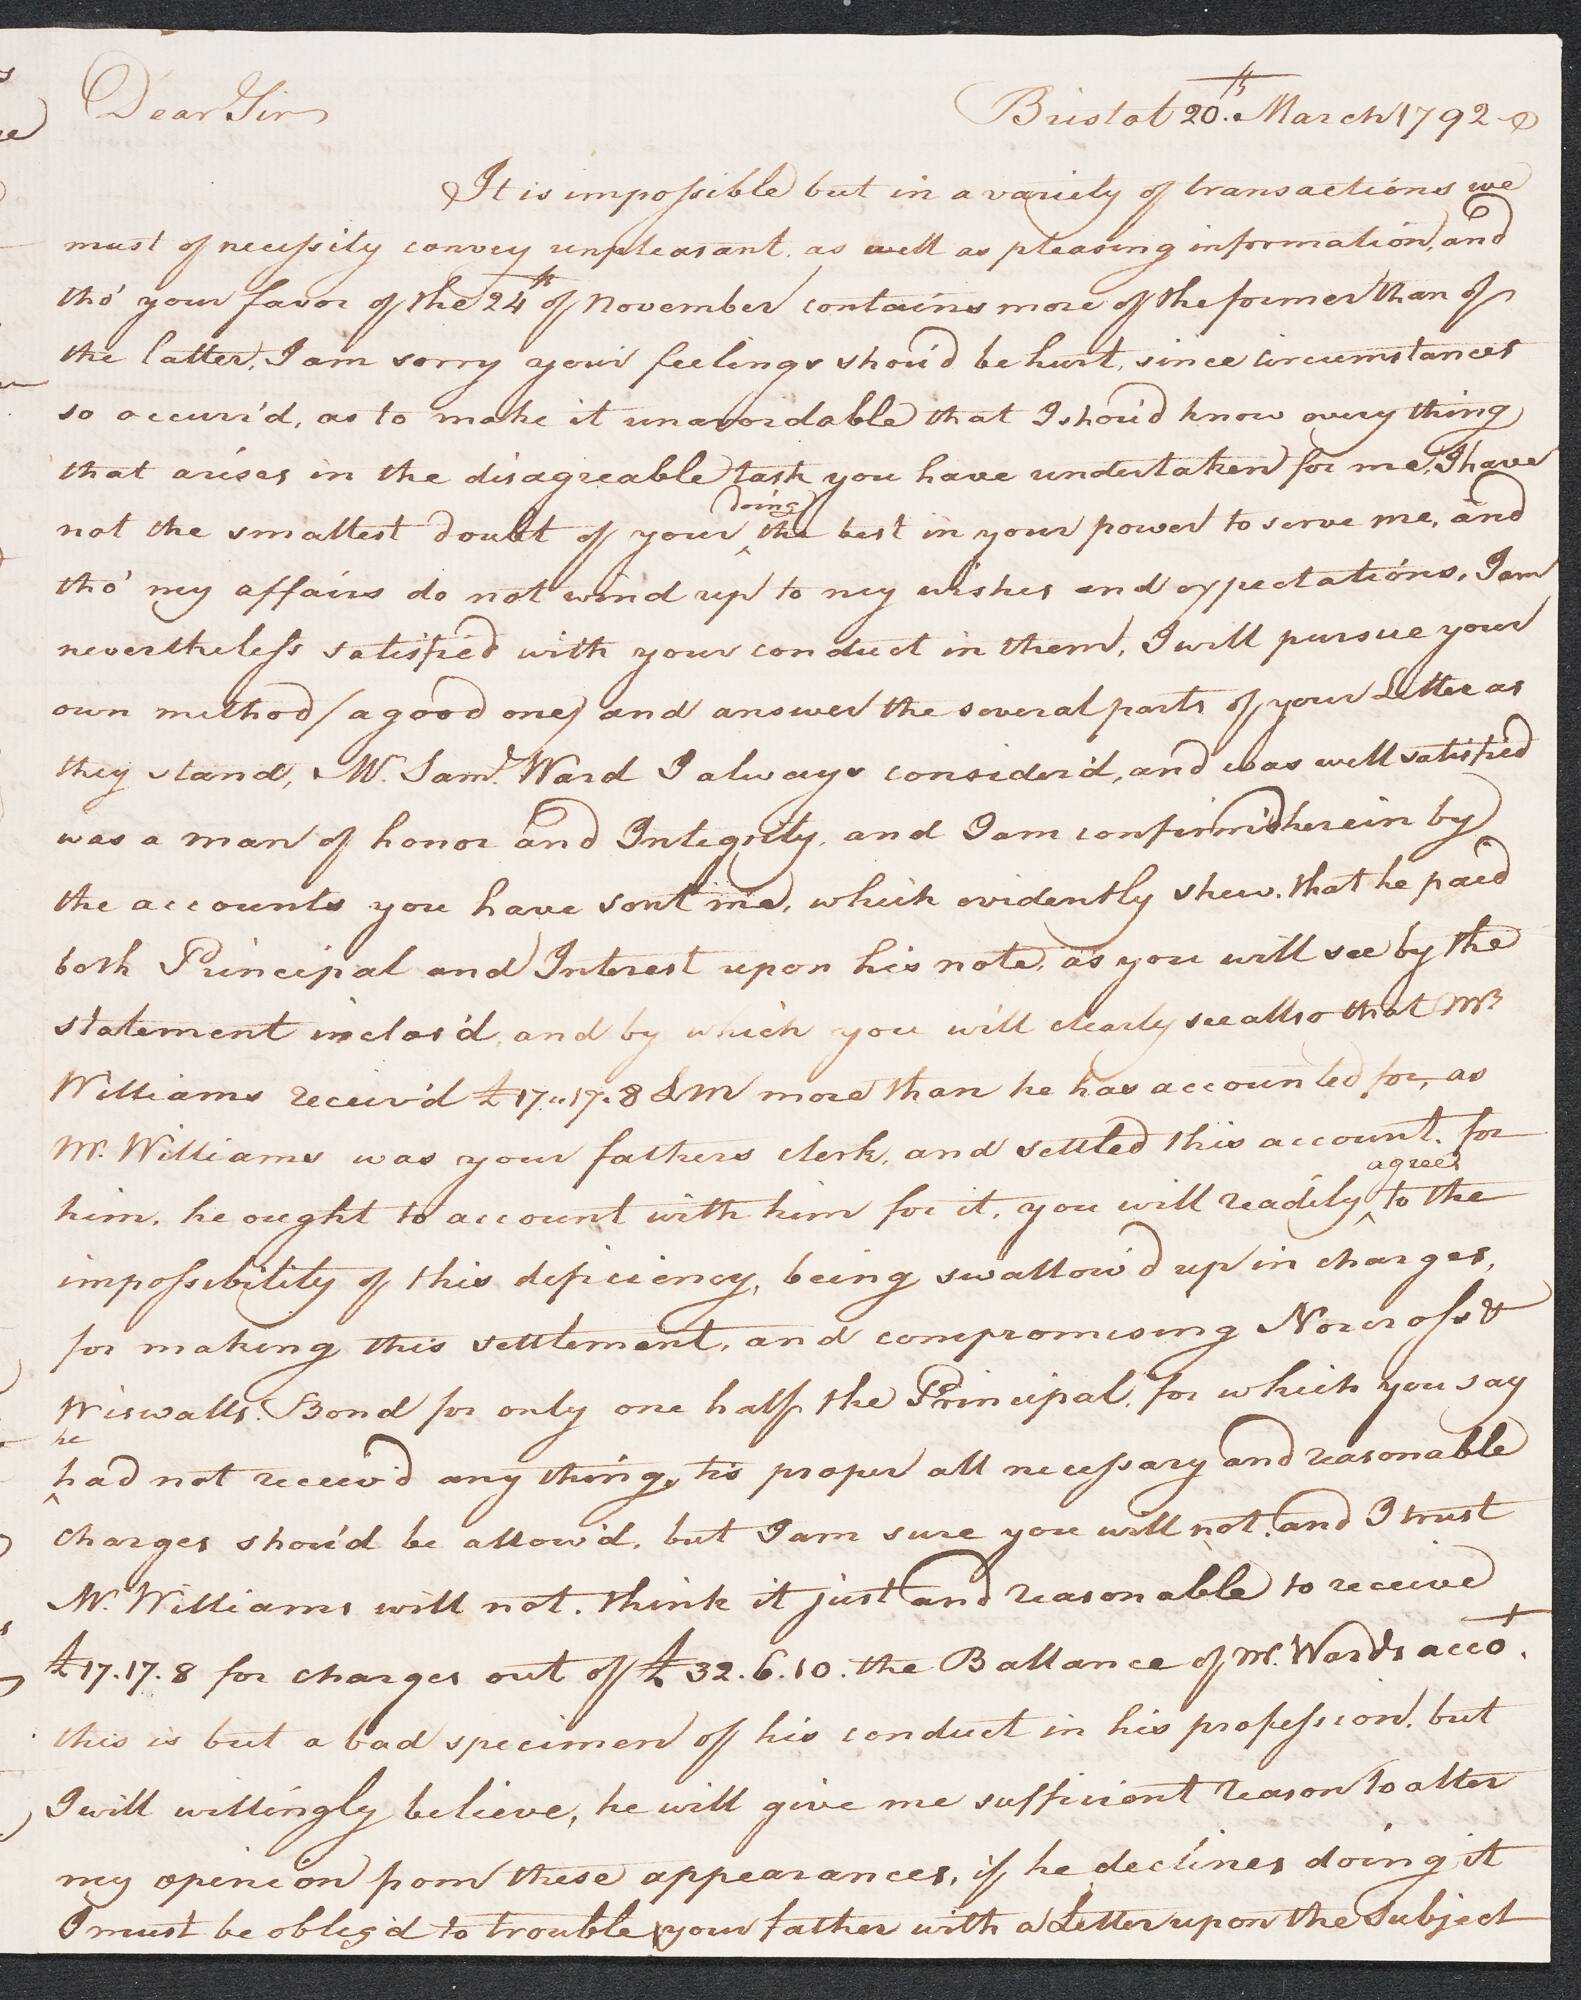 Dear Sir
Bristol 20th. March 1792
It is impossible but in a variety of transactions we
must of necessity convey unpleasant, as well as pleasing information, and
tho' your favor of the 24th of November contains more of the former than of
the latter, I am sorry your feelings shou'd be hurt, since circumstances
so occurr'd, as to make it unavoidable that I shou'd know every thing
that arises in the disagreable task you have undertaken for me, I have
not the smallest doubt of your ^doing the best in your power to serve me, and
tho' my affairs do not wind up to my wishes and expectations, I am
nevertheless satisfied with your conduct in them, I will pursue your
own method (a good one) and answer the several parts of your Letter as
they stand, Mr. Saml. Ward I always consider'd, and was well satisfied
was a man of honor and Integrity, and I am confirm'd herein by
the accounts you have sent me, which evidently shew, that he paid
both Principal and Interest upon his note, as you will see by the
statement inclos'd, and by which you will clearly see allso that Mr
Williams receiv'd £17..17.8 LM more than he has accounted for, as
Mr. Williams was your fathers clerk, and settled this account, for
him, he ought to account with him for it, you will readily ^agree to the
impossibility of this deficiency, being swallow'd up in charges,
for making this settlement, and compromising Norcross &
Wiswalls Bond for only one half the Principal, for which you say
^he had not receiv'd any thing, tis proper all necessary and reasonable
charges shou'd be allow'd, but I am sure you will not, and I trust
Mr. Williams will not, think it just and reasonable to receive
£17.17.8 for charges out of £32.6.10. the Ballance of Mr. Wards accot.
this is but a bad specimen of his conduct in his profession, but
I will willingly believe, he will give me sufficient reason to alter
my opinion from these appearances, if he declines doing it
I must be oblig'd to trouble your father with a Letter upon the Subject